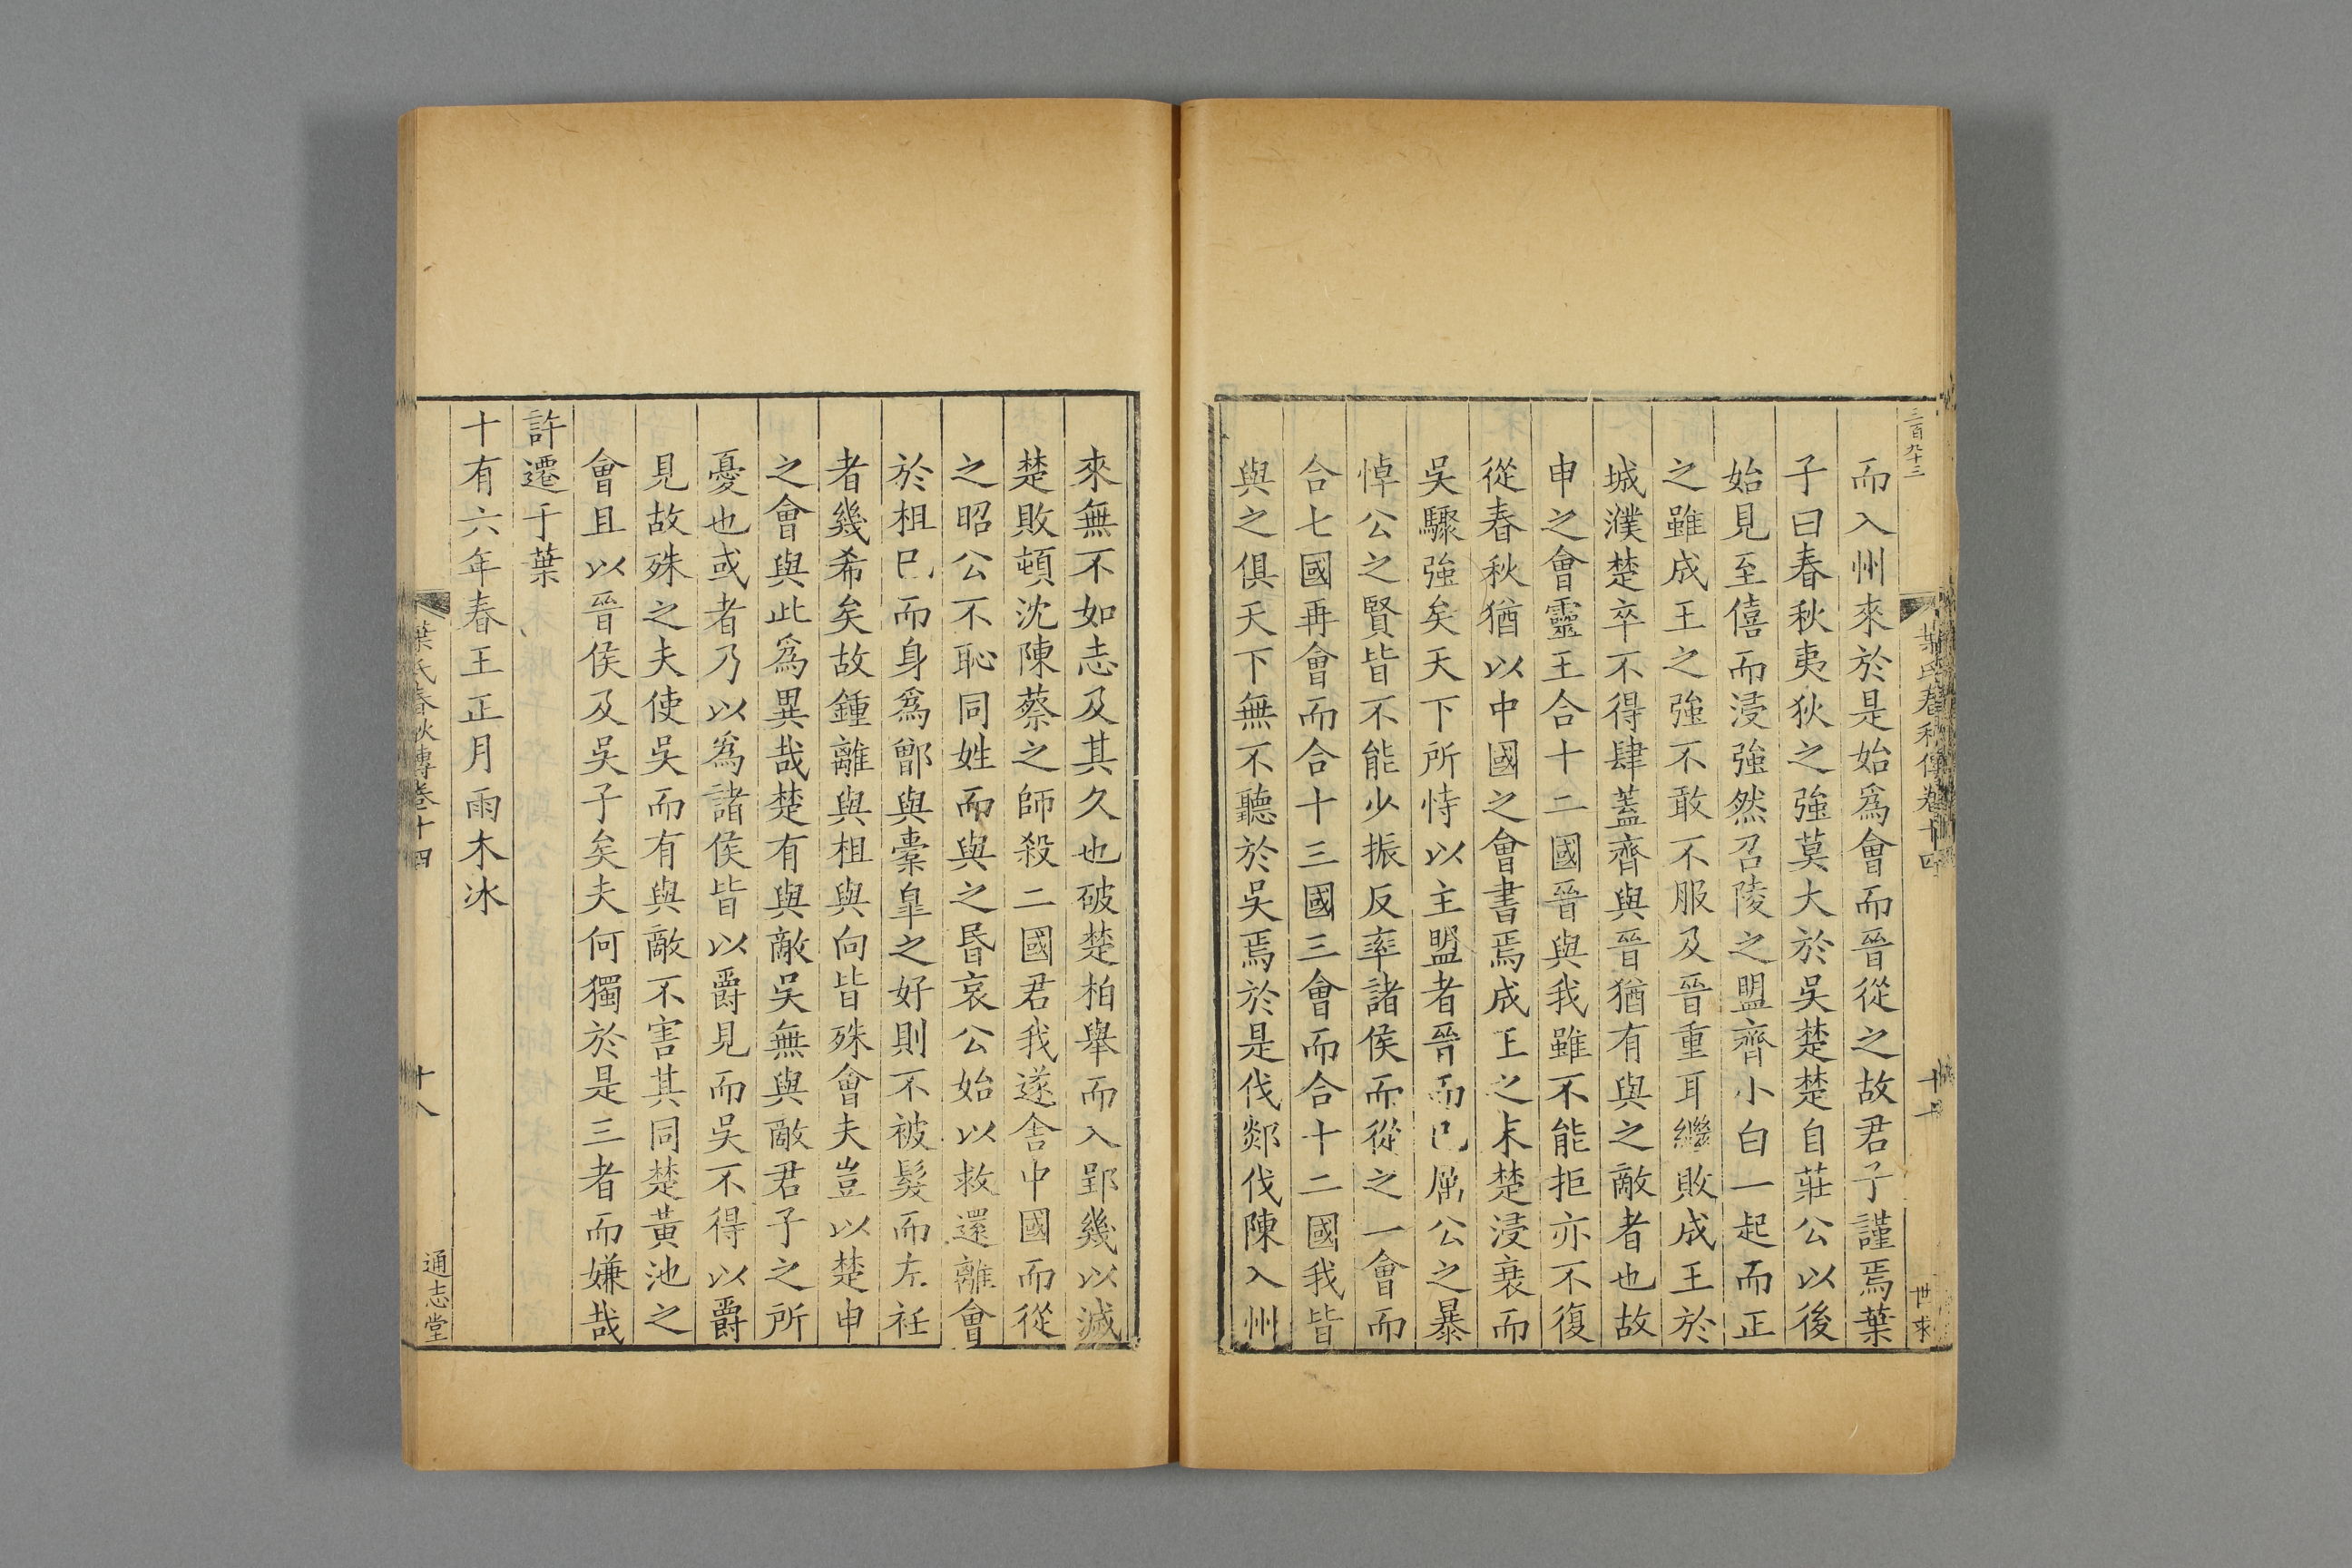 三百九十三
葉氏春秋傳卷十四
世求
而入州來於是始爲會而晉從之故君子謹焉葉
子曰春秋夷狄之強莫大於吳楚楚自莊公以後
始見至僖而浸強然召陵之盟齊小白一起而正
之雖成王之強不敢不服及晉重耳繼敗成王於
城濮楚卒不得肆蓋齊與晉猶有與之敵者也故
申之會靈王合十二國晉與我雖不能拒亦不復
從春秋猶以中國之會書焉成王之末楚浸衰而
吳驟強矣天下所恃以主盟者晉而已厲公之暴
悼公之賢皆不能少振反率諸侯而從之一會而
合七國再會而合十三國三會而合十二國我皆
與之俱天下無不聽於吳焉於是伐郯伐陳入州
來無不如志及其久也破楚柏舉而入郢幾以滅
楚敗頓沈陳蔡之師殺二國君我遂舍中國而從
之昭公不恥同姓而與之昏哀公始以救還離會
於柤已而身爲鄫與橐臯之好則不被髮而左衽
者幾希矣故鍾離與柤與向皆殊會夫豈以楚申
之會與此爲異哉楚有與敵吳無與敵君子之所
憂也或者乃以爲諸侯皆以爵見而吳不得以爵
見故殊之夫使吳而有與敵不害其同楚黃池之
會且以晉侯及吳子矣夫何獨於是三者而嫌哉
許遷于葉
十有六年春王正月雨木冰
葉氏春秋傳卷十四
十八
通志堂